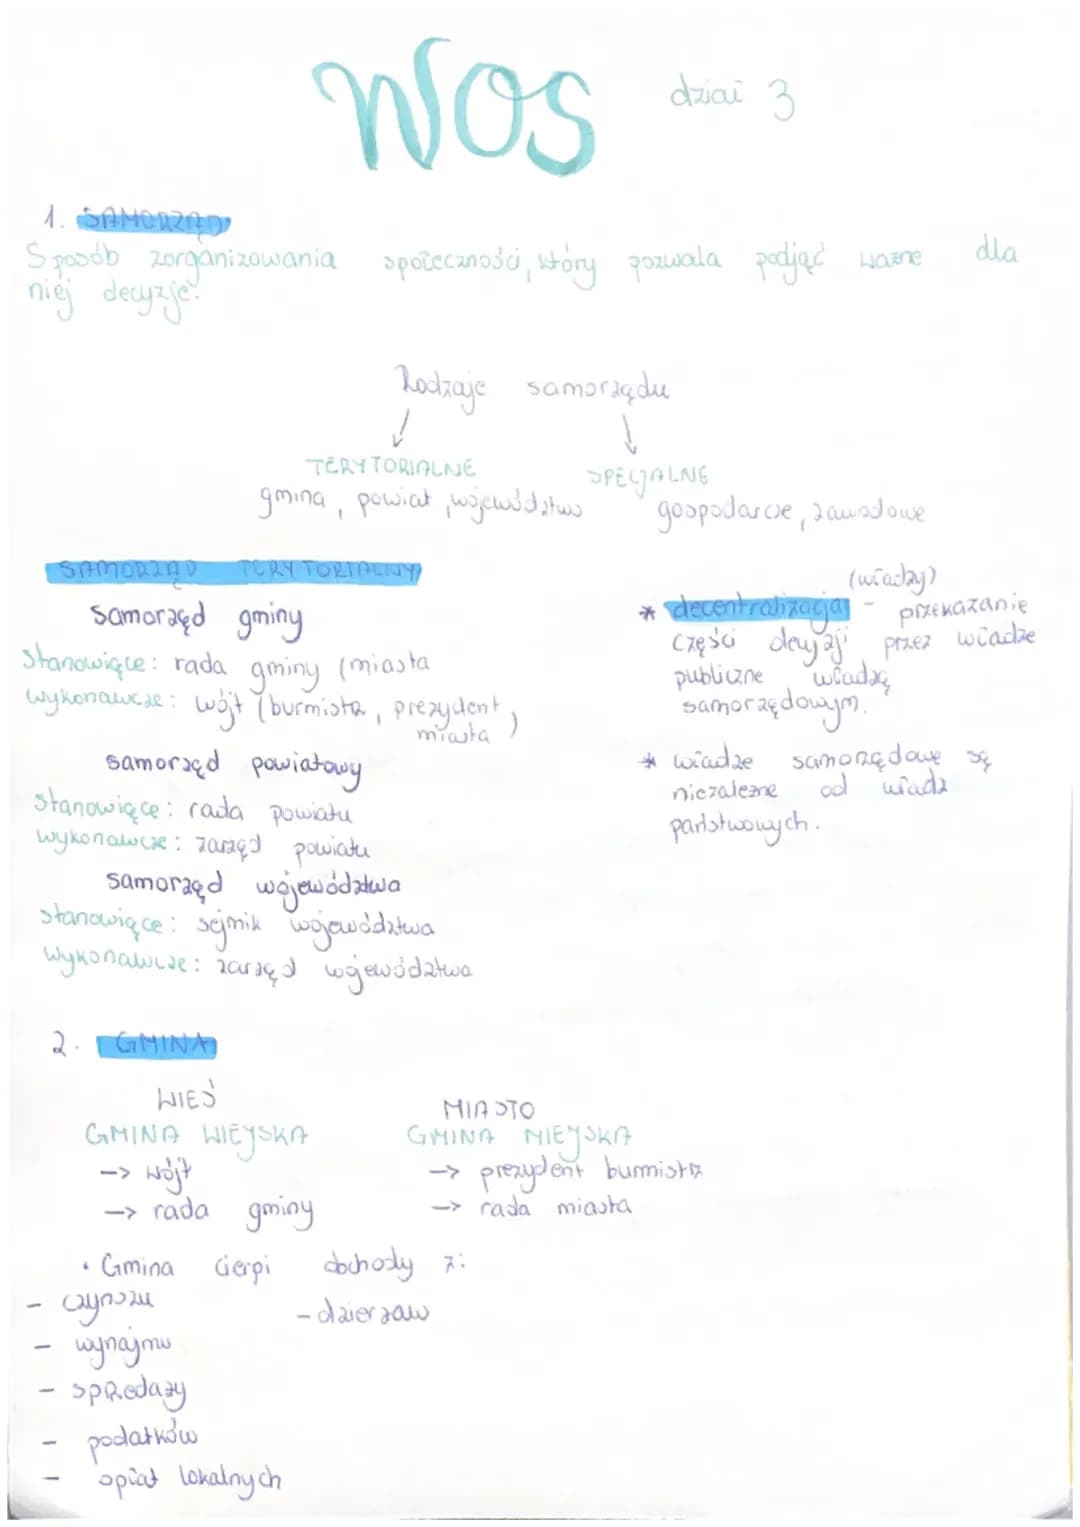 WOS dział 3
1. SAMORZĄD
Sposób zorganizowania społeczności, który pozwala podjąć ważne dla
niej decyzje.
Rodzaje samorządu
TERYTORIALNE
gmina, powiat, województwo
SPECJALNE
gospodarcze, zawodowe
SAMORZĄD TERYTORIALNY
samorząd gminy
Stanowiące: rada gminy (miasta
wykonawcze: wójt (burmistrz, prezydent
miasta)
samorząd powiatowy
Stanowiące: rada powiatu
wykonawcze: zarząd powiatu
samorząd województwa
stanowiące: sejmik województwa
wykonawcze: zarząd województwa
(władzy)
* decentralizacja - przekazanie
części decyzji przez władze
publiczne władzą
samorządowym.
* władze samorządowe są
niezależne od władz
państwowych.
2. GMINA
WIEŚ
GMINA WIEJSKA
-> wójt
-> rada gminy
MIASTO
GMINA MIEJSKA
-> prezydent burmistrz
-> rada miasta
• Gmina cierpi dochody z:
- czynszu
- dzierżaw
- wynajmu
- sprzedaży
- podatków
- opłat lokalnych